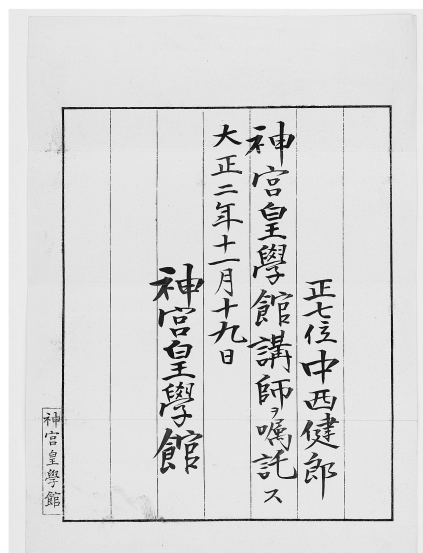 正七位中西健郎
神宮皇學館講師ヲ嘱託ス
大正二年十一月十九日
神宮皇學館
神宮皇學館